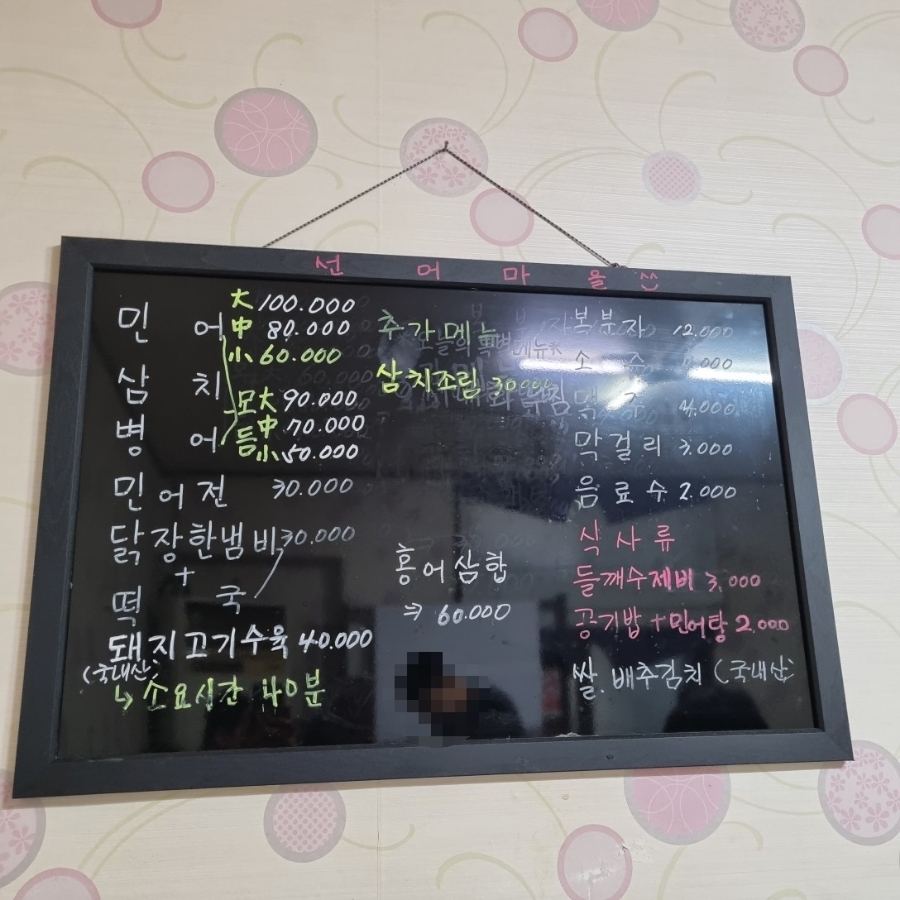 선어마을
민어 大 100.000
中 80.000
小 60.000
삼치
병어
모등 大 90.000
中 70.000
小 50.000
민어전 30.000
닭장한냄비 30.000
+
떡국
돼지고기수육 40.000
(국내산)
↳ 소요시간 40분
추가메뉴
삼치조림 30000
홍어삼합
⇒ 60.000
복분자 12.000
소주
맥주 4.000
막걸리 3.000
음료수 2.000
식사류
들깨수제비 3.000
공기밥 + 민어탕 2.000
쌀. 배추김치 (국내산)